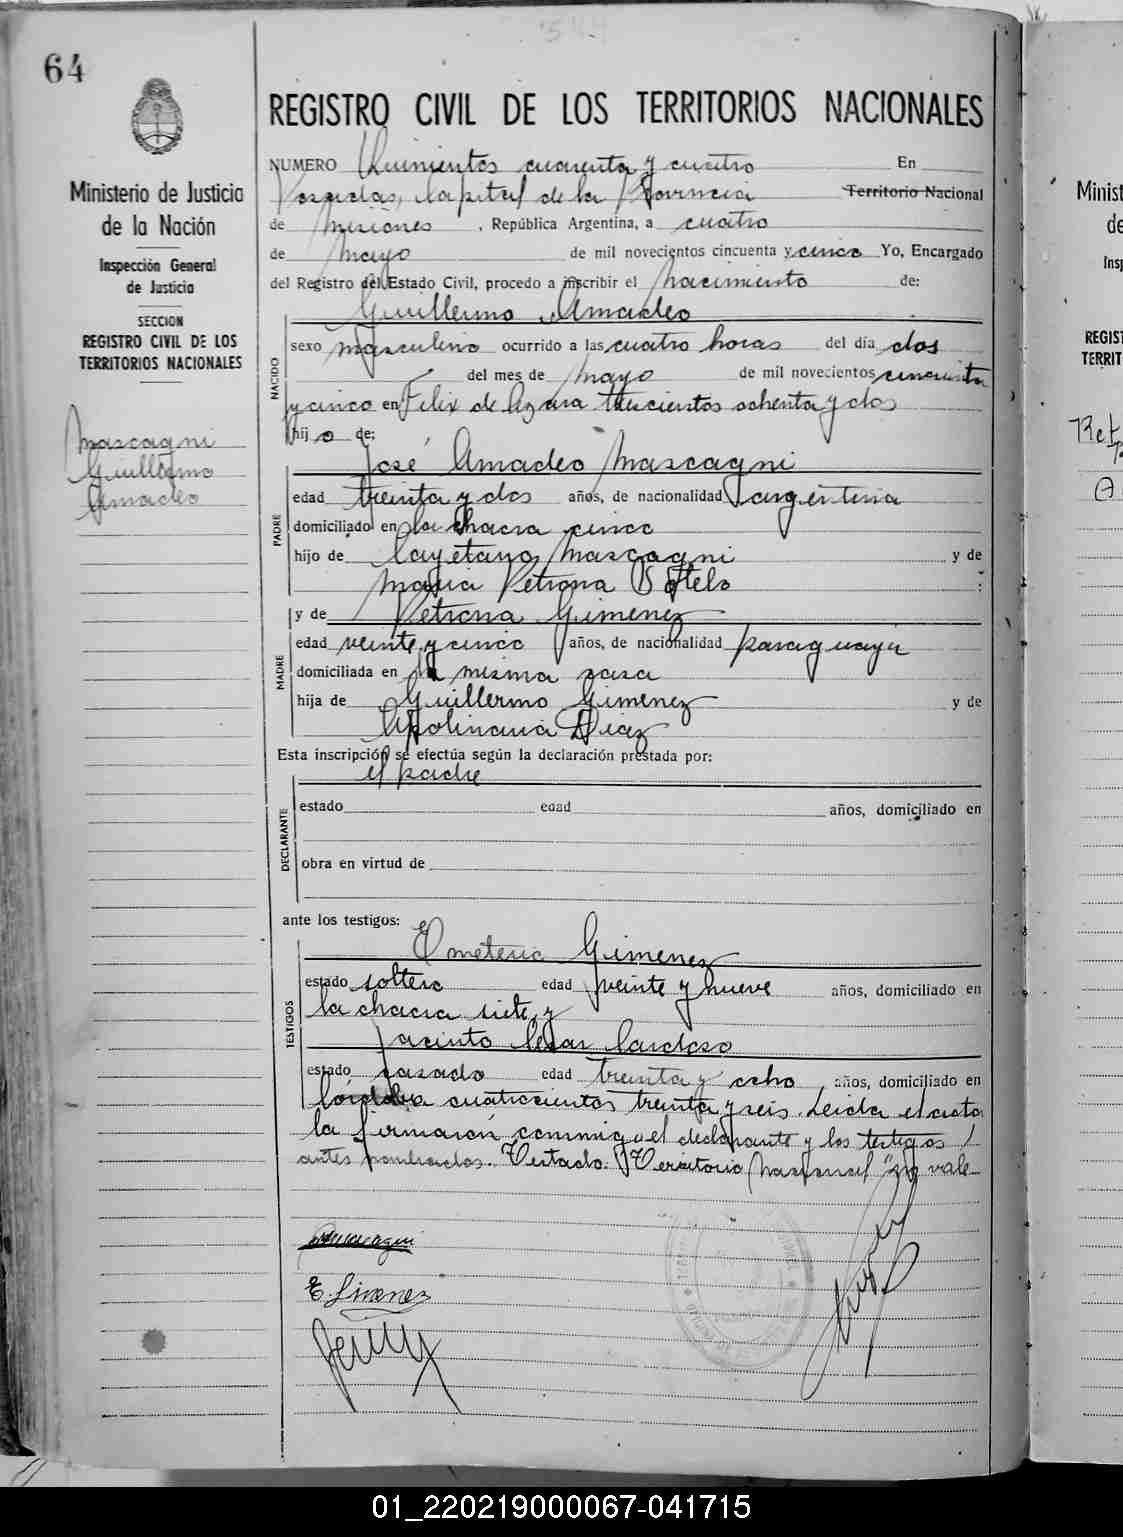 64
REGISTRO CIVIL DE LOS TERRITORIOS NACIONALES
Ministerio de Justicia
de la Nación
Inspección General
de Justicia
SECCION
REGISTRO CIVIL DE LOS
TERRITORIOS NACIONALES
Mascagni
Guillermo
Amadeo
NUMERO Quinientos cuarenta y cuatro En
Posadas, Capital de la Provincia Territorio Nacional
de Misiones, República Argentina, a cuatro
de Mayo de mil novecientos cincuenta y cinco Yo, Encargado
del Registro del Estado Civil, procedo a inscribir el Nacimiento de:
Guillermo Amadeo
NACIDO
sexo masculino ocurrido a las cuatro horas del día dos
del mes de Mayo de mil novecientos cincuenta
y cinco en Felix de Azara trescientos ochenta y dos
hijo de:
José Amadeo Mascagni
PADRE
edad treinta y dos años, de nacionalidad argentina
domiciliado en la chacra cinco
hijo de Cayetano Mascagni y de
Maria Petrona Sotelo
y de Petrona Gimenez
MADRE
edad veinte y cinco años, de nacionalidad paraguaya
domiciliada en la misma casa
hija de Guillermo Gimenez y de
Apolinaria Diaz
Esta inscripción se efectúa según la declaración prestada por:
el padre
DECLARANTE
estado edad años, domiciliado en
obra en virtud de
ante los testigos:
Emeterio Gimenez
TESTIGOS
estado soltero edad veinte y nueve años, domiciliado en
la chacra siete y
Jacinto Cesar Cardozo
estado casado edad treinta y ocho, años, domiciliado en
Córdoba cuatrocientos treinta y seis. Leida el acta
la firmaron conmigo el declarante y los testigos
antes nombrados. Testado: "Territorio Nacional" no vale
Mascagni
E. Gimenez
Minist
de
Insp
REGIST
TERRIT
01_220219000067-041715